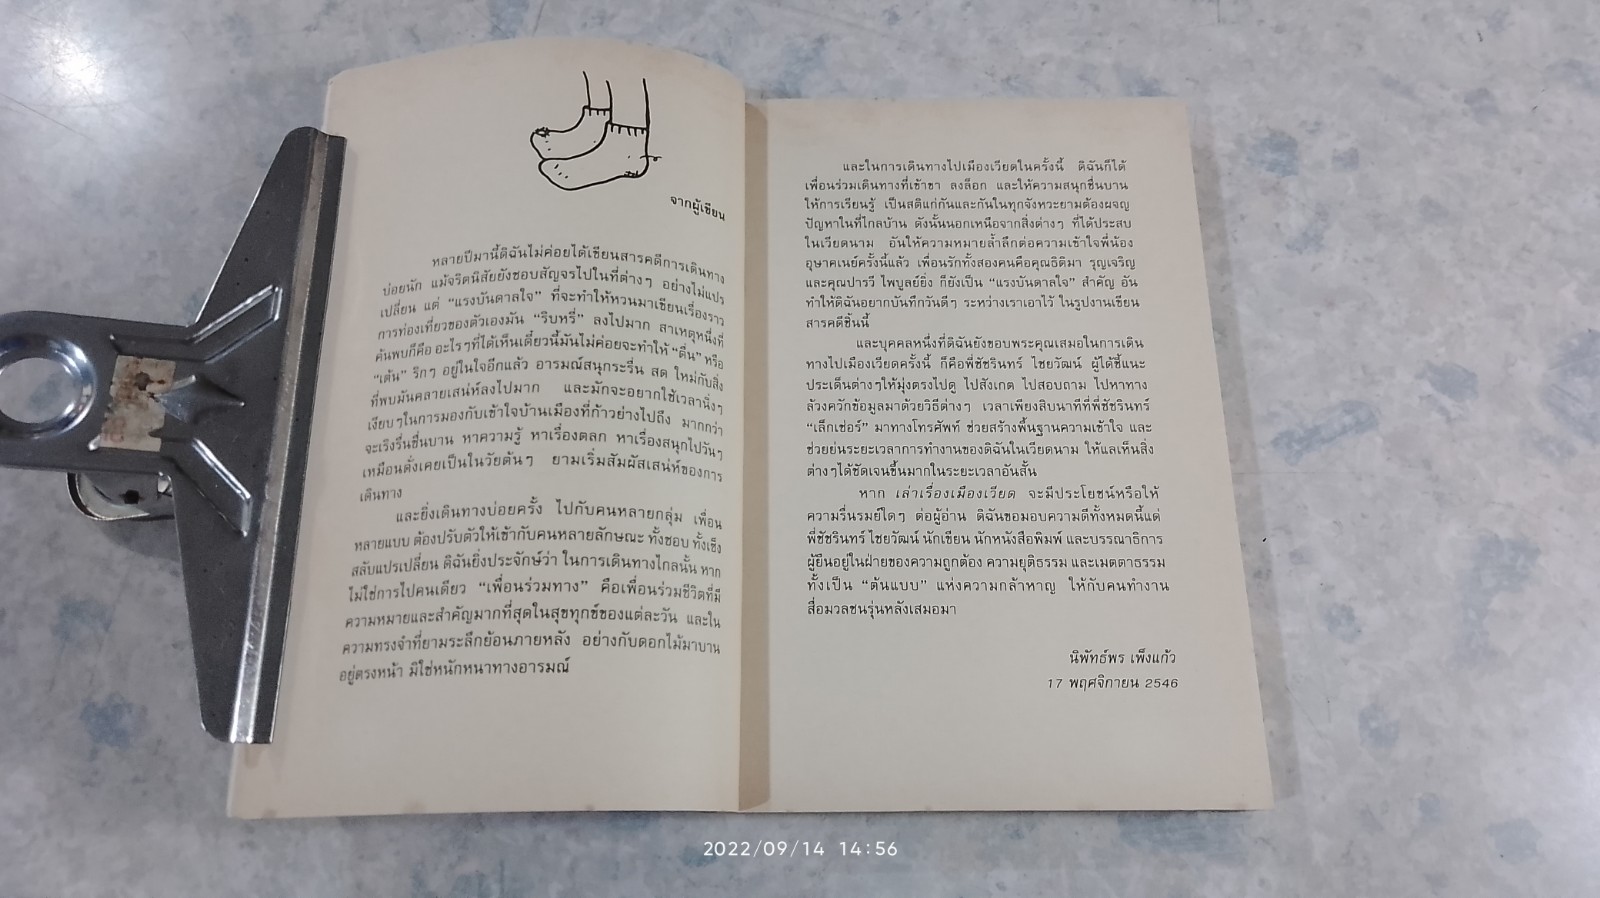 จากผู้เขียน
หลายปีมานี้ดิฉันไม่ค่อยได้เขียนสารคดีการเดินทาง
บ่อยนัก แม้จริตนิสัยยังชอบสัญจรไปในที่ต่างๆ อย่างไม่แปร
เปลี่ยน แต่ “แรงบันดาลใจ” ที่จะทำให้หวนมาเขียนเรื่องราว
การท่องเที่ยวของตัวเองมัน “ริบหรี่” ลงไปมาก สาเหตุหนึ่งที่
ค้นพบก็คือ อะไรๆที่ได้เห็นเดี๋ยวนี้มันไม่ค่อยจะทำให้ “ตื่น” หรือ
“เต้น” ริกๆ อยู่ในใจอีกแล้ว อารมณ์สนุกระรื่น สด ใหม่กับสิ่ง
ที่พบมันคลายเสน่ห์ลงไปมาก และมักจะอยากใช้เวลานิ่งๆ
เงียบๆในการมองกับเข้าใจบ้านเมืองที่ก้าวย่างไปถึง มากกว่า
จะเริงรื่นชื่นบาน หาความรู้ หาเรื่องตลก หาเรื่องสนุกไปวันๆ
เหมือนดั่งเคยเป็นในวัยต้นๆ ยามเริ่มสัมผัสเสน่ห์ของการ
เดินทาง
และยิ่งเดินทางบ่อยครั้ง ไปกับคนหลายกลุ่ม เพื่อน
หลายแบบ ต้องปรับตัวให้เข้ากับคนหลายลักษณะ ทั้งชอบ ทั้งเซ็ง
สลับแปรเปลี่ยน ดิฉันยิ่งประจักษ์ว่า ในการเดินทางไกลนั้น หาก
ไม่ใช่การไปคนเดียว “เพื่อนร่วมทาง” คือเพื่อนร่วมชีวิตที่มี
ความหมายและสำคัญมากที่สุดในสุขทุกข์ของแต่ละวัน และใน
ความทรงจำที่ยามระลึกย้อนภายหลัง อย่างกับดอกไม้มาบาน
อยู่ตรงหน้า มิใช่หนักหนาทางอารมณ์
และในการเดินทางไปเมืองเวียดในครั้งนี้ ดิฉันก็ได้
เพื่อนร่วมเดินทางที่เข้าขา ลงล็อก และให้ความสนุกชื่นบาน
ให้การเรียนรู้ เป็นสติแก่กันและกันในทุกจังหวะยามต้องผจญ
ปัญหาในที่ไกลบ้าน ดังนั้นนอกเหนือจากสิ่งต่างๆ ที่ได้ประสบ
ในเวียดนาม อันให้ความหมายล้ำลึกต่อความเข้าใจพี่น้อง
อุษาคเนย์ครั้งนี้แล้ว เพื่อนรักทั้งสองคนคือคุณธิติมา รุญเจริญ
และคุณปารวี ไพบูลย์ยิ่ง ก็ยังเป็น “แรงบันดาลใจ” สำคัญ อัน
ทำให้ดิฉันอยากบันทึกวันดีๆ ระหว่างเราเอาไว้ ในรูปงานเขียน
สารคดีชิ้นนี้
และบุคคลหนึ่งที่ดิฉันยังขอบพระคุณเสมอในการเดิน
ทางไปเมืองเวียดครั้งนี้ ก็คือพี่ชัชรินทร์ ไชยวัฒน์ ผู้ได้ชี้แนะ
ประเด็นต่างๆให้มุ่งตรงไปดู ไปสังเกต ไปสอบถาม ไปหาทาง
ล้วงควักข้อมูลมาด้วยวิธีต่างๆ เวลาเพียงสิบนาทีที่พี่ชัชรินทร์
“เล็กเช่อร์” มาทางโทรศัพท์ ช่วยสร้างพื้นฐานความเข้าใจ และ
ช่วยย่นระยะเวลาการทำงานของดิฉันในเวียดนาม ให้แลเห็นสิ่ง
ต่างๆได้ชัดเจนขึ้นมากในระยะเวลาอันสั้น
หาก เล่าเรื่องเมืองเวียด จะมีประโยชน์หรือให้
ความรื่นรมย์ใดๆ ต่อผู้อ่าน ดิฉันขอมอบความดีทั้งหมดนี้แด่
พี่ชัชรินทร์ ไชยวัฒน์ นักเขียน นักหนังสือพิมพ์ และบรรณาธิการ
ผู้ยืนอยู่ในฝ่ายของความถูกต้อง ความยุติธรรม และเมตตาธรรม
ทั้งเป็น “ต้นแบบ” แห่งความกล้าหาญ ให้กับคนทำงาน
สื่อมวลชนรุ่นหลังเสมอมา
นิพัทธ์พร เพ็งแก้ว
17 พฤศจิกายน 2546
2022/09/14 14:56